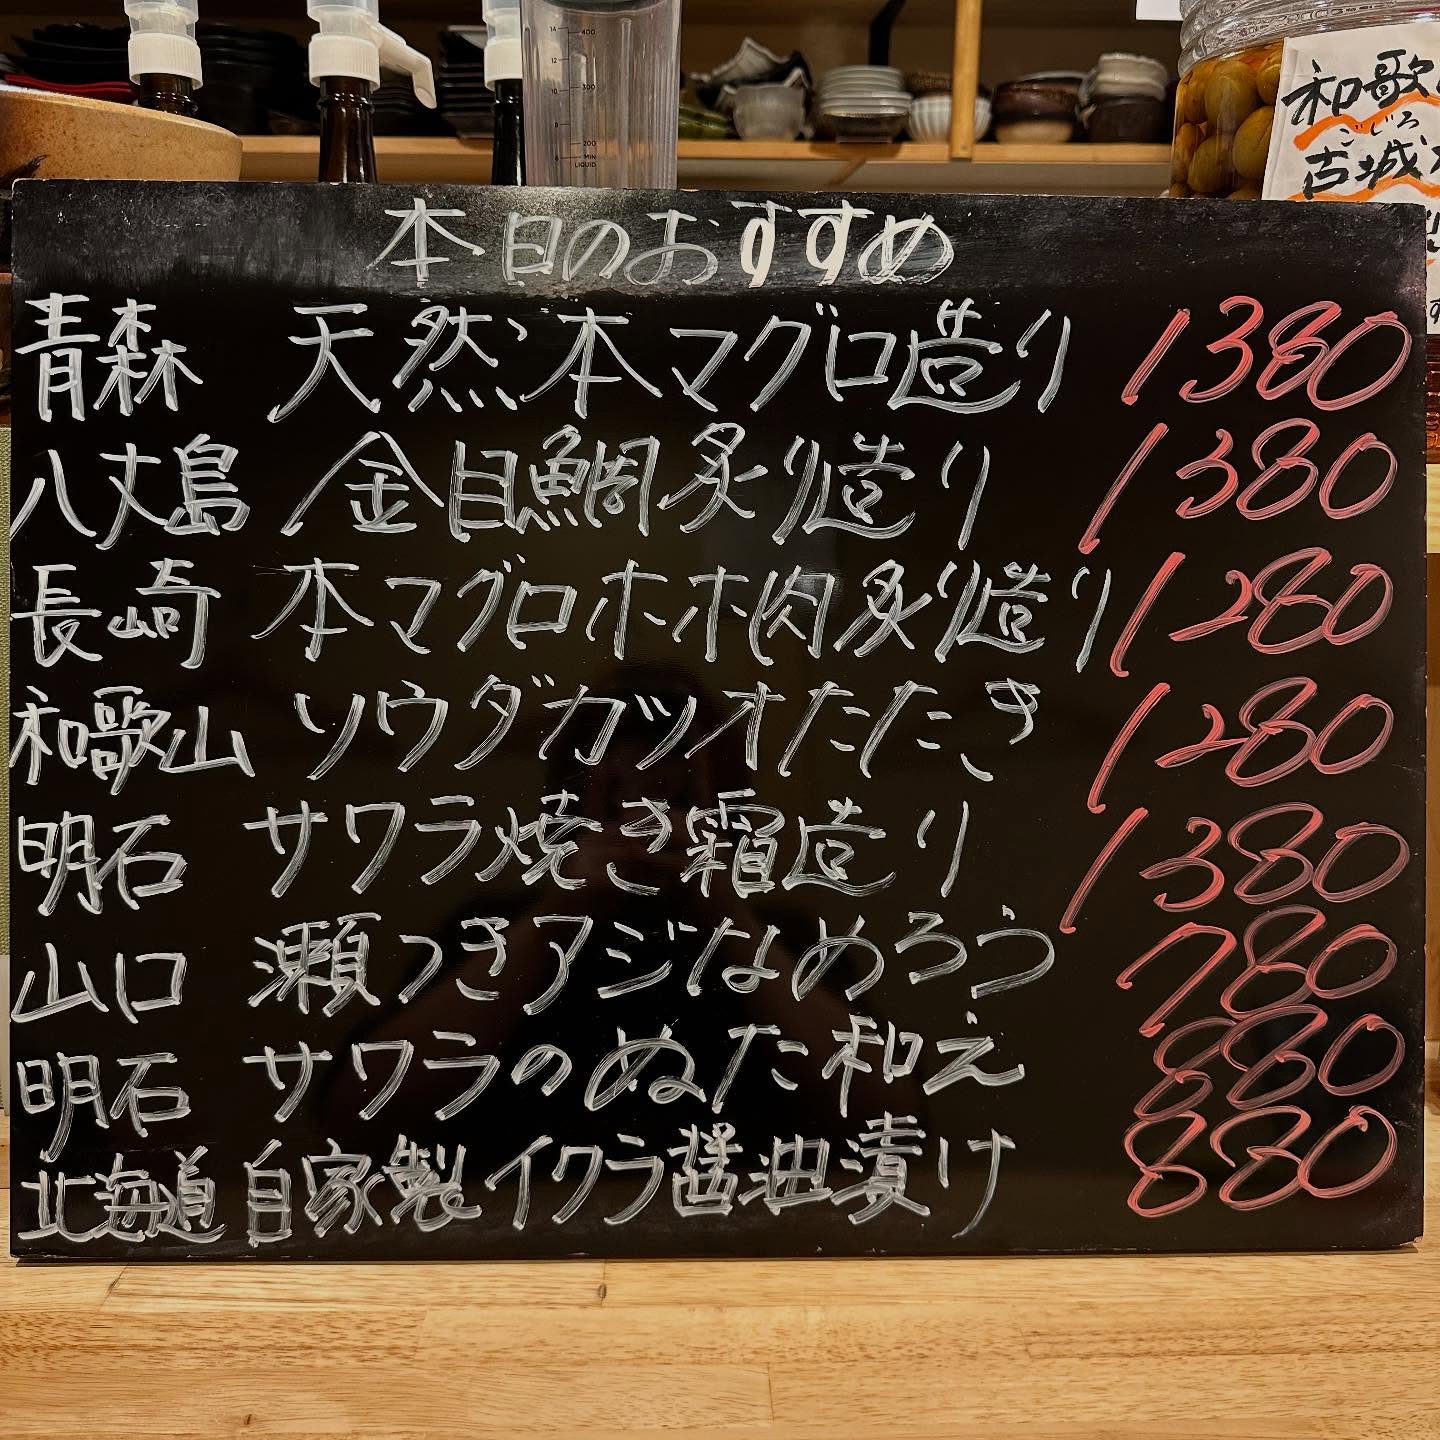 14
400
12
10
300
8
200
6
MIN
LIQUID
和歌
ごじろ
古城
本日のおすすめ
青森 天然本マグロ造り 1380
八丈島 金目鯛炙り造り 1380
長崎 本マグロホホ肉炙り造り 1280
和歌山 ソウダガツオたたき 1280
明石 サワラ焼き霜造り 1380
山口 瀬つきアジなめろう 780
明石 サワラのぬた和え 880
北海道 自家製イクラ醤油漬け 880